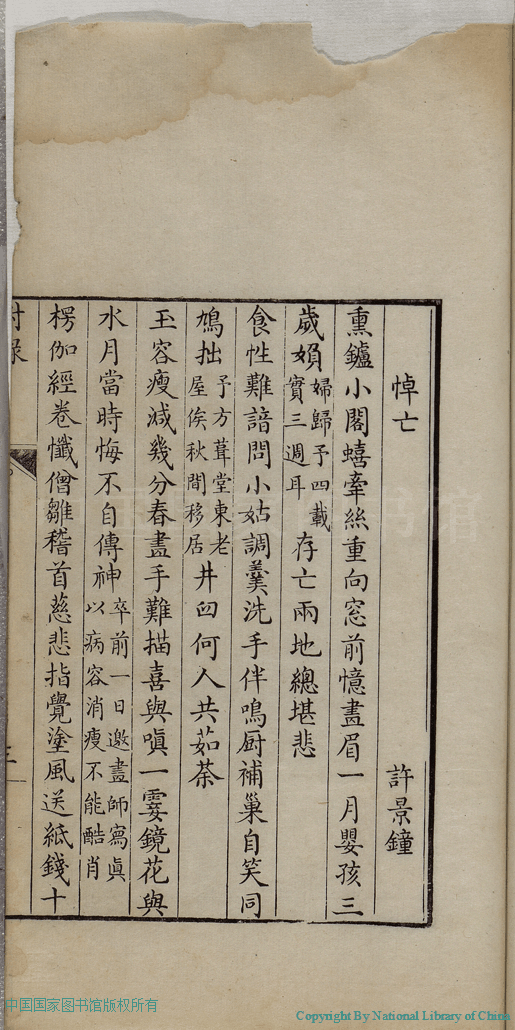 悼亡 許景鐘
熏鑪小閣蟢牽絲重向窓前憶畫眉一月嬰孩三
歲媍婦歸予四載實三週耳存亡兩地總堪悲
食性難諳問小姑調羹洗手伴鳴厨補巢自笑同
鳩拙予方葺堂東老屋俟秋間移居井臼何人共茹荼
玉容瘦減幾分春畫手難描喜與嗔一霎鏡花與
水月當時悔不自傳神卒前一日邀畫師寫眞以病容消瘦不能酷肖
楞伽經卷懺僧雛稽首慈悲指覺塗風送紙錢十
中国国家图书馆版权所有
Copyright By National Library of China